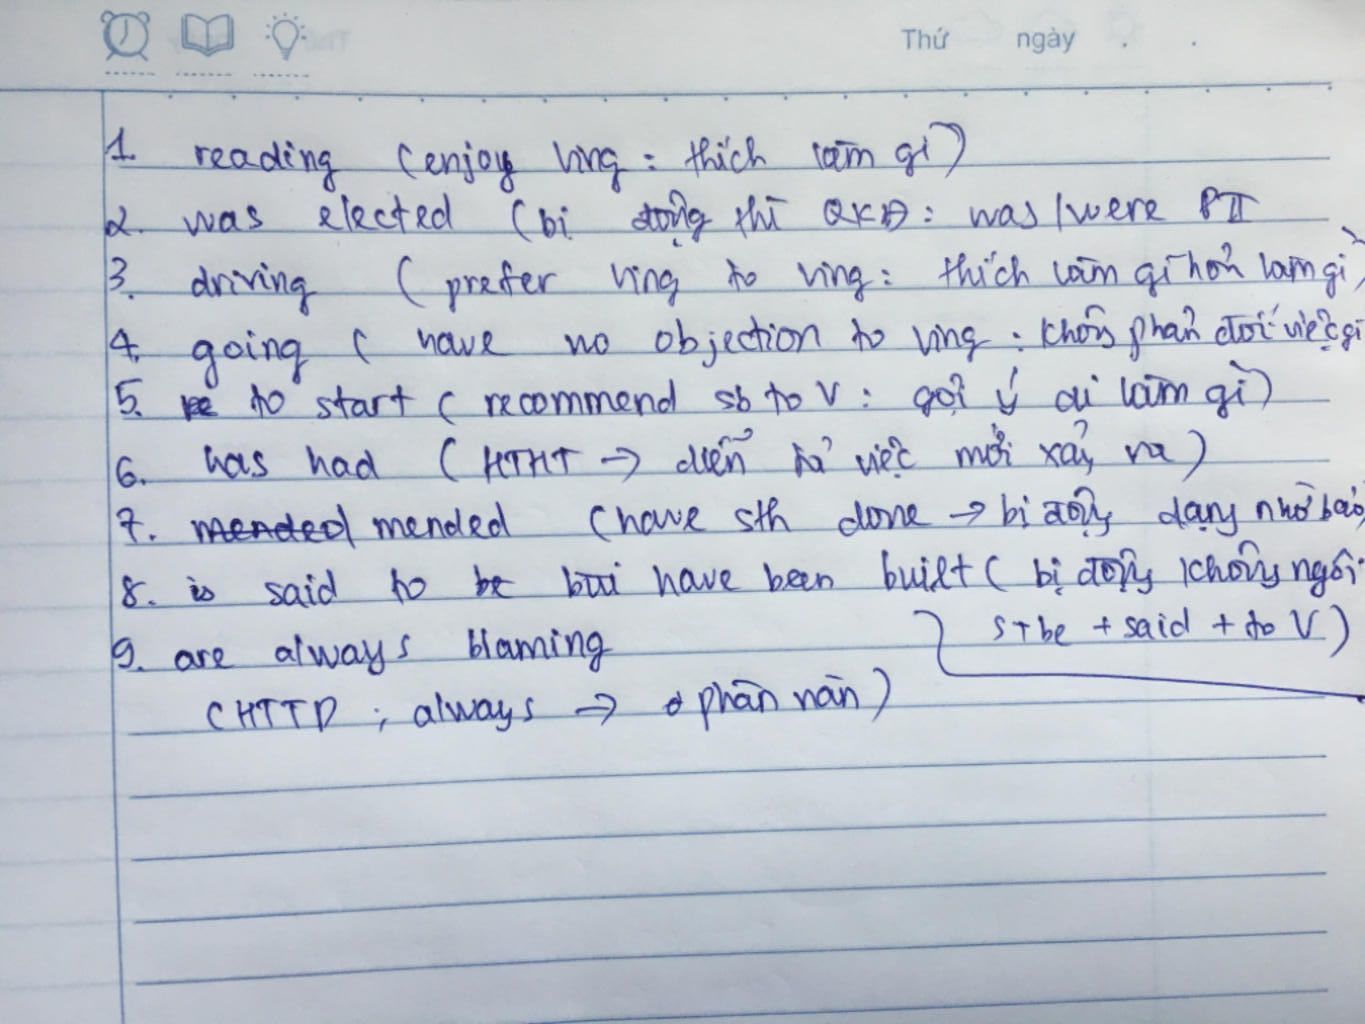 Thứ ngày
1. reading (enjoy Ving : thích làm gì)
2. was elected (bị động thì QKĐ : was/were PII
3. driving (prefer Ving to Ving : thích làm gì hơn làm gì)
4. going (have no objection to Ving : không phản đối việc gì
5. to start (recommend sb to V : gợi ý ai làm gì)
6. has had (HTHT → diễn tả việc mới xảy ra)
7. mended mended (have sth done → bị động dạng nhờ bảo
8. is said to be bui have been built (bị động không ngôi
S + be + said + to V)
9. are always blaming
(HTTD ; always → phàn nàn)